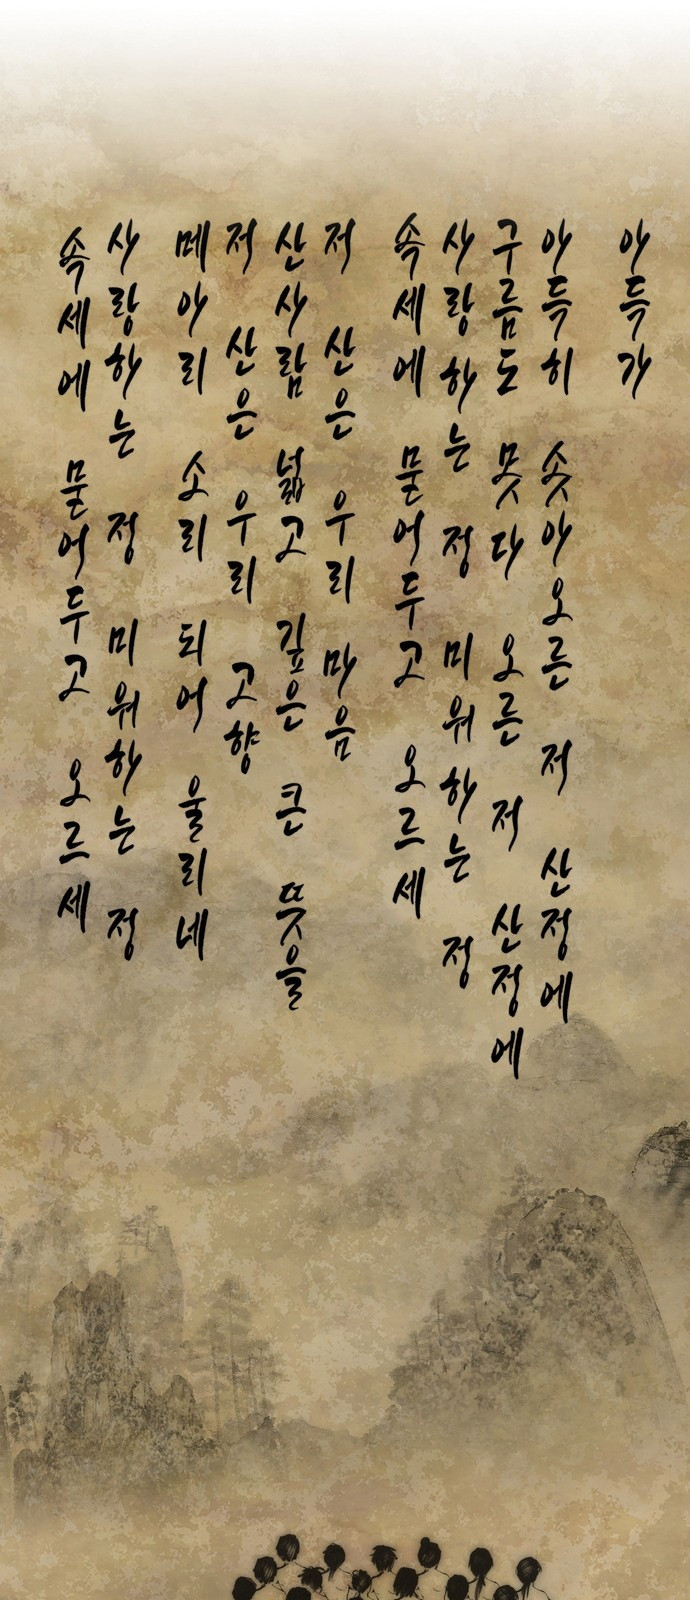 아득가
아득히 솟아오른 저 산정에
구름도 못다 오른 저 산정에
사랑하는 정 미워하는 정
속세에 묻어두고 오르세
저 산은 우리 마음
산사람 넓고 깊은 큰 뜻을
저 산은 우리 고향
메아리 소리 되어 울리네
사랑하는 정 미워하는 정
속세에 묻어두고 오르세